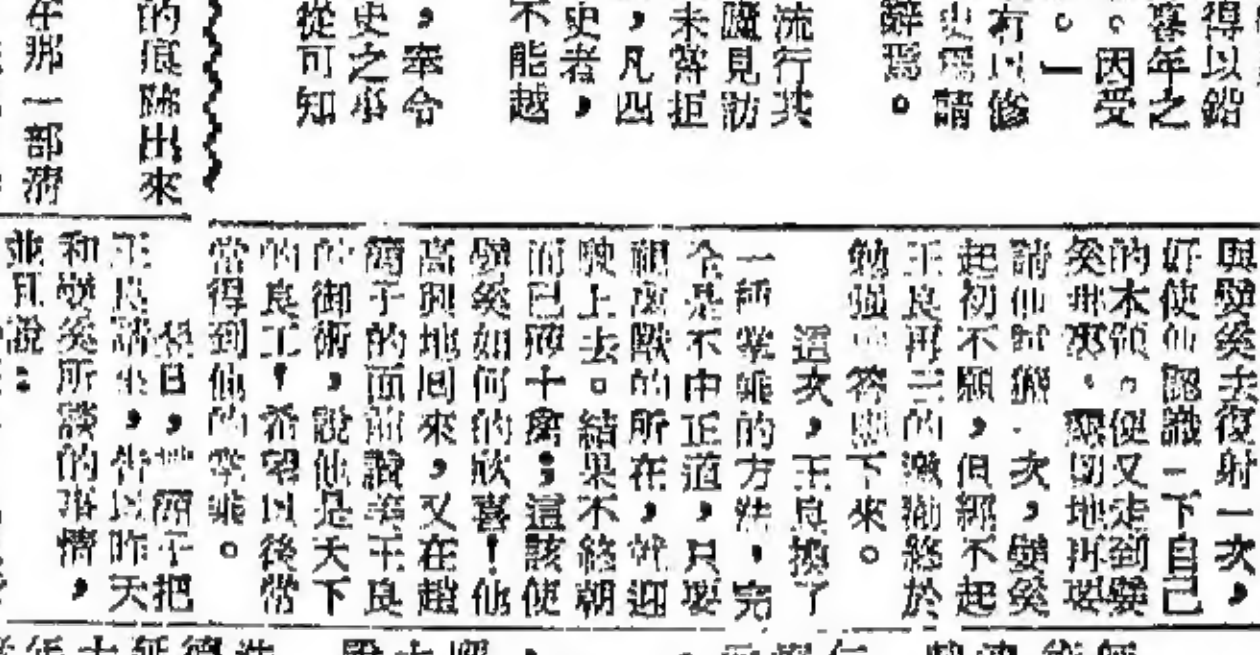 得以鉛
暮年之
。因受
。」
有以修
史屬請
辭焉。
流行其
見訪
未嘗拒
，凡四
史者，
不能越
，奉令
史之事
從可知
的痕跡出來
年那一部清
與嬖奚去復射一次，
好使他認識一下自己
的本領。便又走到嬖
奚那裏。懇切地再要
請他射獵一次，嬖奚
起初不願，但經不起
王良再三的激勵終於
勉強的答應下來。
這次，王良換了
一種掌乘的方法，完
全是不中正道，只要
覷禽獸的所在，就迎
駛上去。結果不終朝
而已獲十禽；這該使
嬖奚如何的欣喜！他
高興地回來，又在趙
簡子的面前讚美王良
的御術，說他是天下
的良工！希望以後常
當得到他的掌乘。
翌日，趙簡子把
王良請來，告以昨天
和嬖奚所談的事情，
並且說：